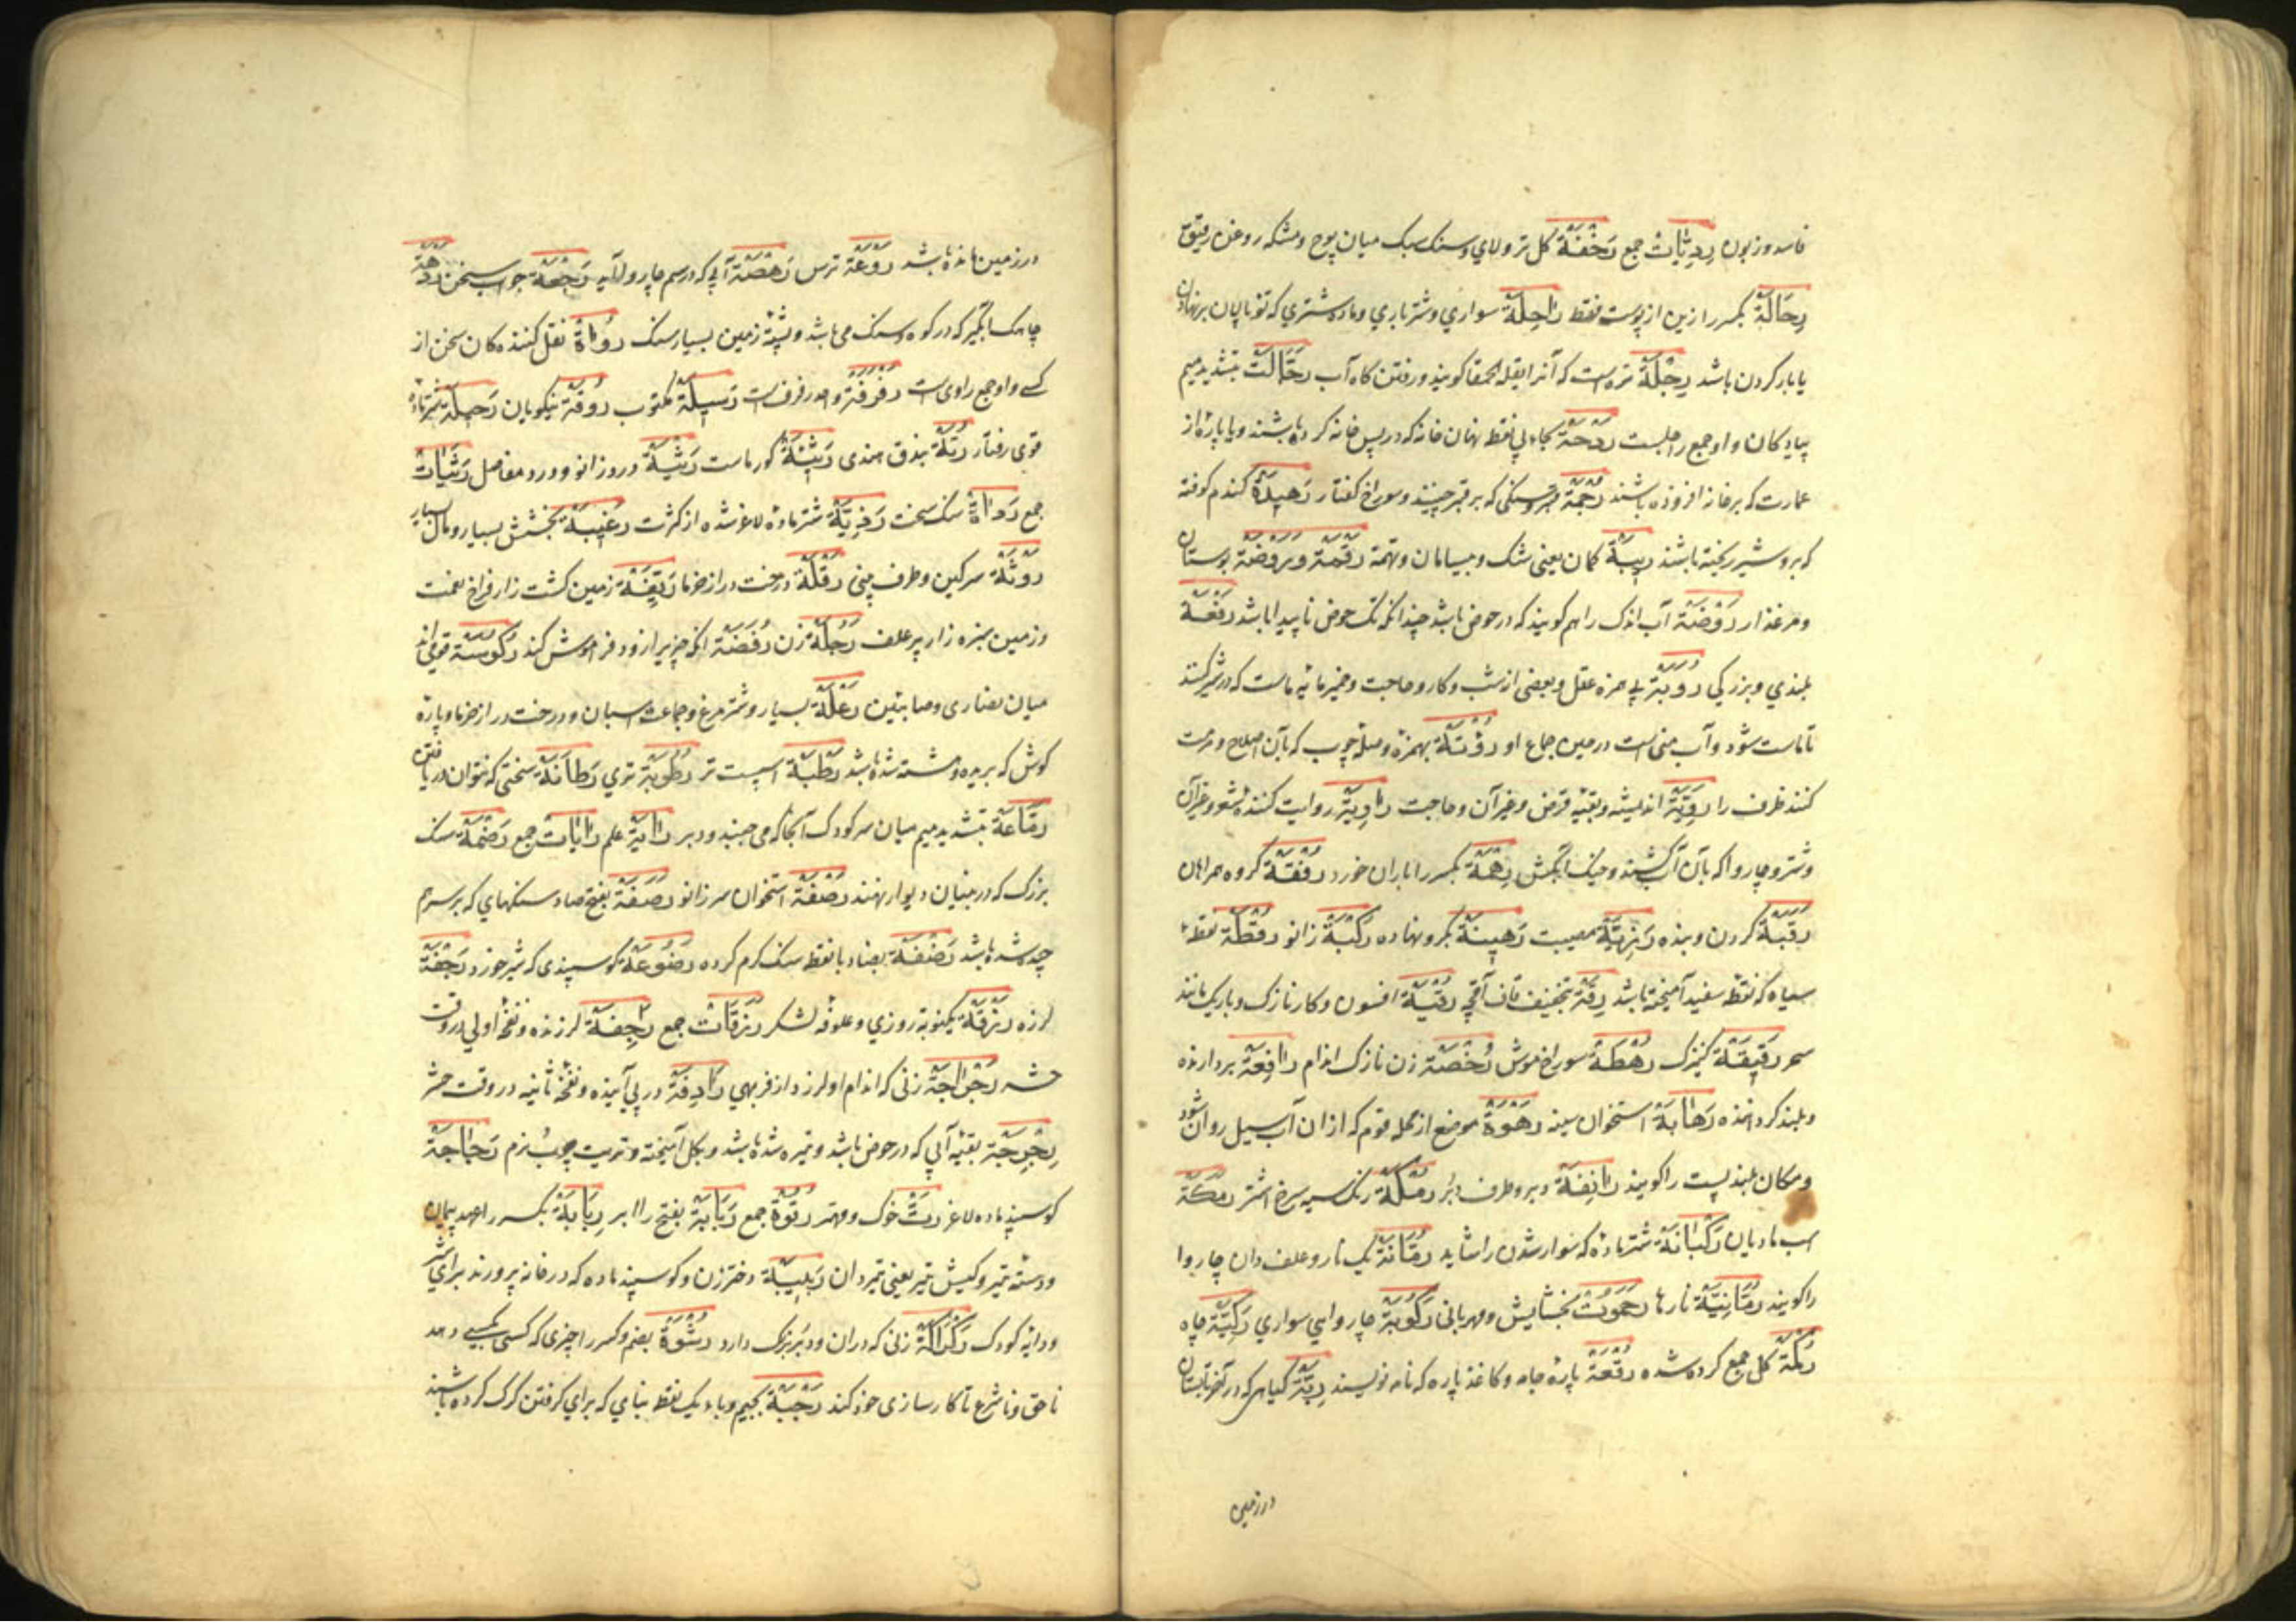 فاسد و زبون رديّات جمع رَخْفَة کل تر و لای و سنک سبک میان پوج و مسکه روغن رقیق
رِحَالَة بکسر را زین از پوست فقط راحِلَة سواری و شتر باری و ماده شتری که توناپان بر نهادن
یا بار کردن باشد رِجْلَة تره است که آنرا بقلة الحمقا کویند و رفتن کاه آب رَجَّالَت بتشدید میم
پیادکان و او جمع راجلست رَدْحَة بحاء بی نقط نهان خانه که در پس خانه کرده باشند و یا پارهٔ از
عمارت که بر خانه افزوده باشند رُجْمَة قبر و سنکی که بر قبر چینند و سوراخ کفتار رَهِيدَة کندم کوفته
که برو شیر ریخته باشند رِيبَة کمان یعنی شک و بیسامان و تهمة رَقْمَة و رَوْضَة بوستان
و مرغذار رَوْضَة آب اندک را هم کویند که در حوض باشد چندانکه تک حوض ناپیدا باشد رَفْعَة
بلندی و بزرکی رُوبَة بی همزه عقل و بعضی از شب و کار و حاجت و خمیر مایه ماست که در شیر کنند
تا ماست شود و آب منی است در حین جماع او رُؤْبَة بهمزه وصله چوب که بآن اصلاح و مرمت
کنند ظرف را رَوِيَّة اندیشه و بقیه قرض و غیر آن و حاجت رَاوِيَة روایت کننده شعر و غیر آن
و شتر و چاروا که بآن آب کشند و خیک آبکش رِهْمَة بکسر را باران خورد رُفْقَة کروه همراهان
رَقَبَة کردن و بنده رَزِيَّة مصیبت رَهِينَة کرو نهاده رُكْبَة زانو رُقْطَة نقطهاء
سیاه که نقط سفید آمیخته باشد رِقَة بتخفیف قاف آقچه رُقْيَة افسون و کار نازک و باریک مانند
سحر رَقِيقَة کنیزک رُهَطَة سوراخ موش رَخْصَة زن نازک اندام رَافِعَة بردارنده
و بلند کرداننده رَهَابَة استخوان سینه رَهْوَة موضع از محله قوم که از ان آب سیل روان شود
و مکان بلند پست را کویند رَانِفَة دبر و طرف دبر رُمْكَة رنک سیه سرخ اشتر رَمَكَة
اسب مادیان رَكْبَانَة شتر ماده که سوار شدن را شاید رُمَّانَة یک نار و علف دان چاروا
را کویند رُمَّانِيَّة نارها رَحَمُوت بخشایش و مهربانی رَكُوبَة چاروای سواری رَكِيَّة چاه
رُكْمَة کل جمع کرده شده رُقْعَة پارهٔ جامه و کاغذ پاره که نامه نویسند رِبَّة کیاهی که در آخر تابستان
در زمین
در زمین مانده باشد رَوْعَة ترس رَهْصَة آبی که در سم چاروا آید رَجْعَة جواب سخن رَدْهَة
چاهک آبکیر که در کوه و سنک می باشد و پشتهٔ زمین بسیار سنک رُوَاة نقل کننده کان سخن از
کسی و او جمع راوی است رَفْرَفَة واحد رفرف است رَسِيلَة مکتوب رُوقَة نیکویان رَحِيلَة شتر ماده
قوی رفتار رُتَّة بندق هندی رَثِيئَة کور ماست رَثْيَة درد زانو و درد مفاصل رَثَيَات
جمع رَدَاة سنک سخت رَذِيَّة شتر ماده لاغر شده از کثرت رَغِيبَة بخشش بسیار و مال بسیار
رَوْثَة سرکین و طرف بینی رَقْلَة درخت دراز خرما رَيِّفَة زمین کشت زار فراخ نعمت
و زمین سبزه زار پر علف رَجُلَة زن رُفَضَة انکه چیز بر ازو و فراموش کند رَكُوسِيَّة قومی اند
میان نصاری و صابئین رَعْلَة بسیار و شتر مرغ و جماعت اسبان و درخت دراز خرما و پارهٔ
کوش که بریده و شته شده باشد رَطْبَة اسپست تر رُطُوبَة تری رَطَانَة سخنی که نتوان دریافتن
رَمَّاعَة بتشدید میم میان سر کودک آنجا که می جنبد و دبر رَايَة علم رَايَات جمع رَضْمَة سنک
بزرک که در بنیان دیوار نهند رَضْفَة استخوان سر زانو رَصَفَة بفتح صاد سنکهای که بر سر هم
چیده شده باشد رَضْفَة بضاد با نقط سنک کرم کرده رَضُوعَة کوسپندی که شیر خورد رَجْفَة
لرزه رَزْقَة یکنوبة روزی و علوفهٔ لشکر رَزَقَات جمع رَاجِفَة لرزنده و نفخهٔ اولی در وقت
حشر رَجْرَاجَة زنی که اندام او لرزد از فربهی رَادِفَة در پی آینده و نفخهٔ ثانیه در وقت حشر
رِجْرِجَة بقیه آبی که در حوض باشد و تیره شده باشد و بکل آمیخته و تربت چوب نرم رَجَاجَة
کوسپند ماده لاغر رَتّ خوک و مهتر رُتُوَّة جمع رَبَابَة بفتح را ابر رِبَابَة بکسر را عهد پیمان
و دسته تیر و کیش تیر یعنی تیر دان رَبِيبَة دختر زن و کوسپند ماده که در خانه پرورند برای شیر
و دایه کودک رَكْرَاكَة زنی که ران و دبر بزرک دارد رُشْوَة بضم و کسر را چیزی که کسی بکسی دهد
ناحق و ناشرع تا کارسازی خود کند رُجْبَة بجیم و باء یک نقط بنای که برای کرفتن کرک کرده باشند